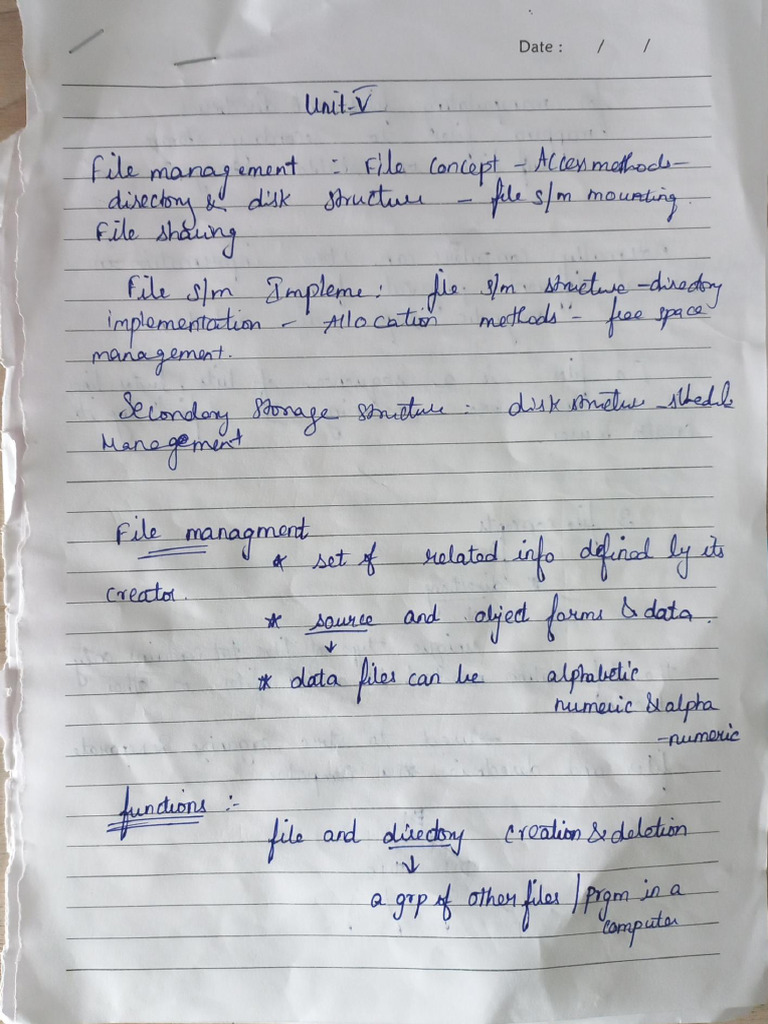 Date : / /
Unit-V
File management : File concept - Access methods -
directory & disk structure - file s/m mounting.
File sharing
File s/m Impleme : file s/m structure - directory
implementation - Allocation methods - free space
management.
Secondary storage structure : disk structure - shedule
Management
File managment
* set of related info defined by its
creator.
* source and object forms & data.
↓
* data files can be alphabetic
numeric & alpha
-numeric
functions :-
file and directory creation & deletion
↓
a grp of other files / prgm in a
computer